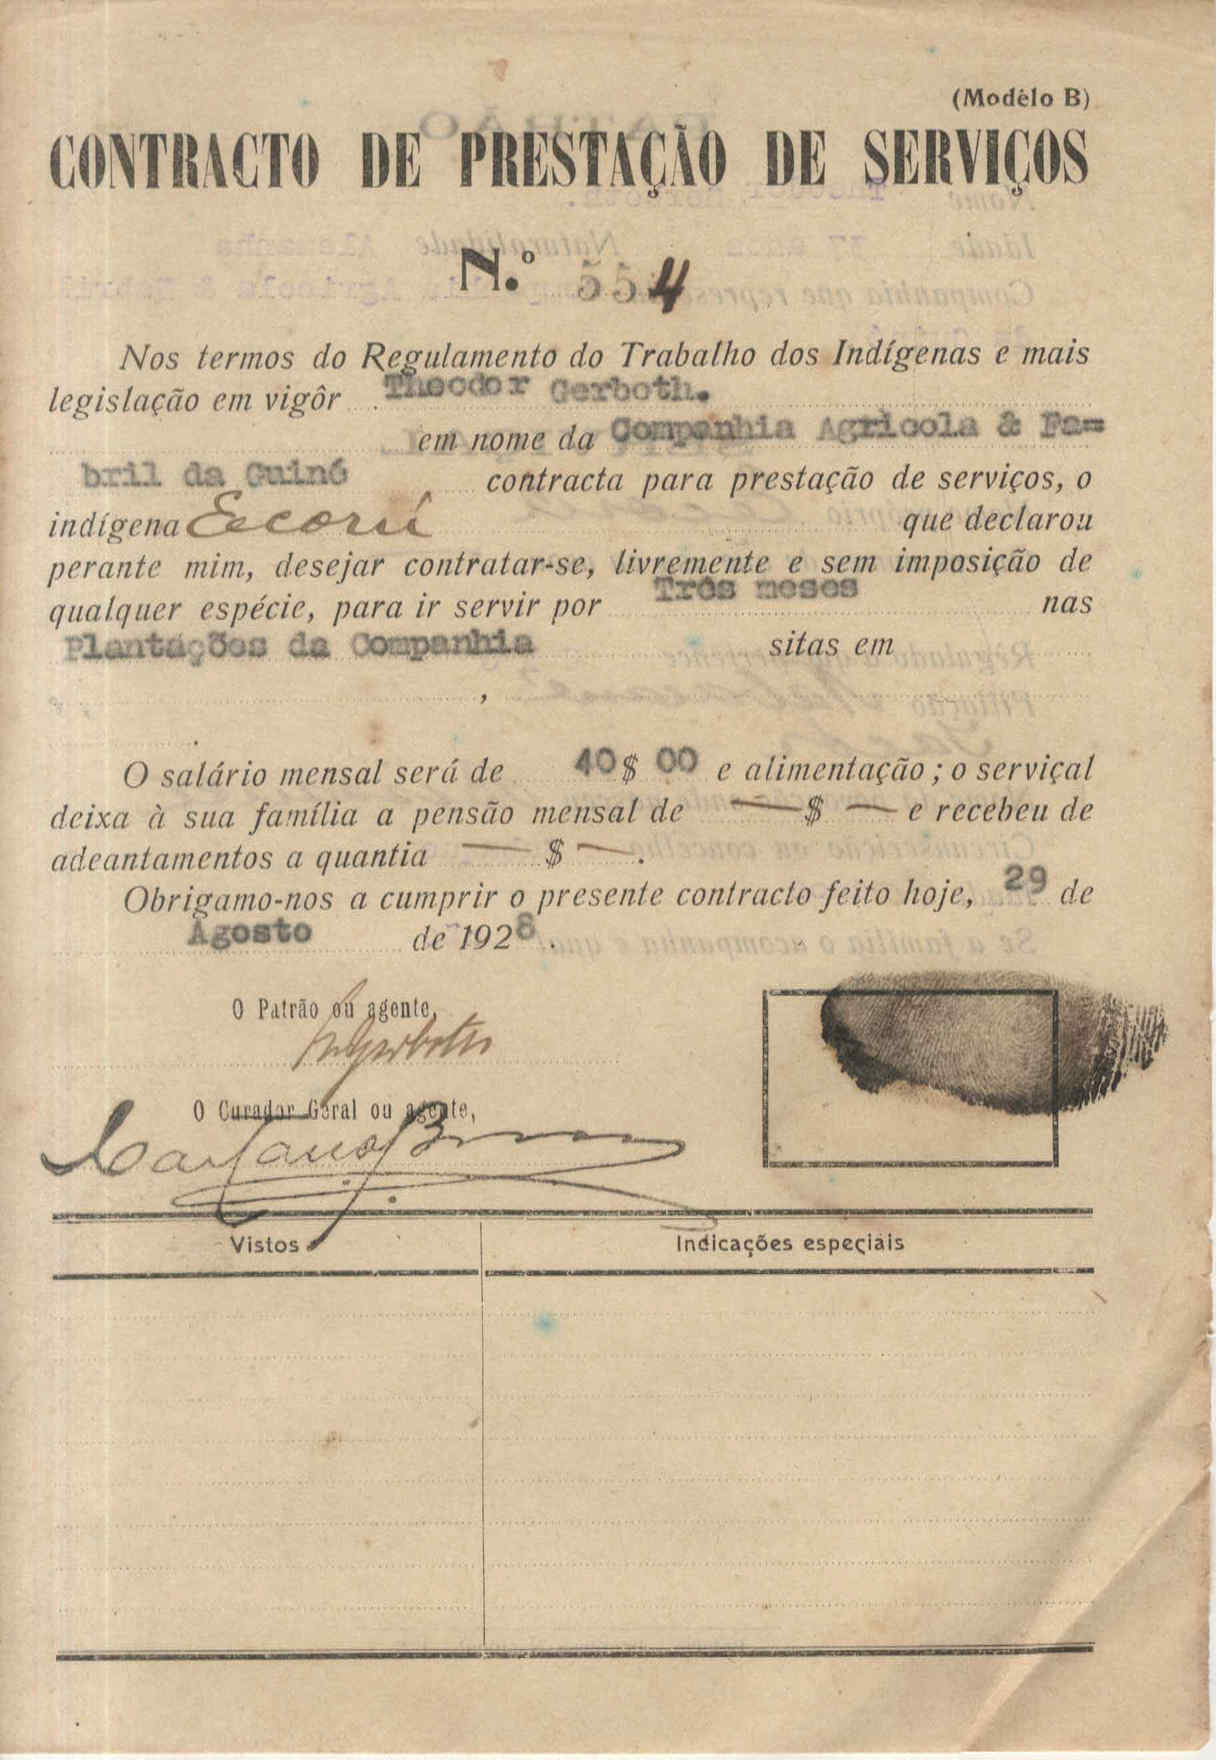 (Modêlo B)
CONTRACTO DE PRESTAÇÃO DE SERVIÇOS
N.º 554
Nos termos do Regulamento do Trabalho dos Indígenas e mais
legislação em vigôr Theodor Gerboth.
em nome da Companhia Agricola & Fa-
bril da Guiné contracta para prestação de serviços, o
indígena Ecorú que declarou
perante mim, desejar contratar-se, livremente e sem imposição de
qualquer espécie, para ir servir por Três meses nas
Plantações da Companhia sitas em
,
O salário mensal será de 40$00 e alimentação; o serviçal
deixa à sua família a pensão mensal de —$— e recebeu de
adeantamentos a quantia —$—.
Obrigamo-nos a cumprir o presente contracto feito hoje, 29 de
Agosto de 1928.
O Patrão ou agente,
Gerboth
O Curador Geral ou agente,
Vistos
Indicações especiais